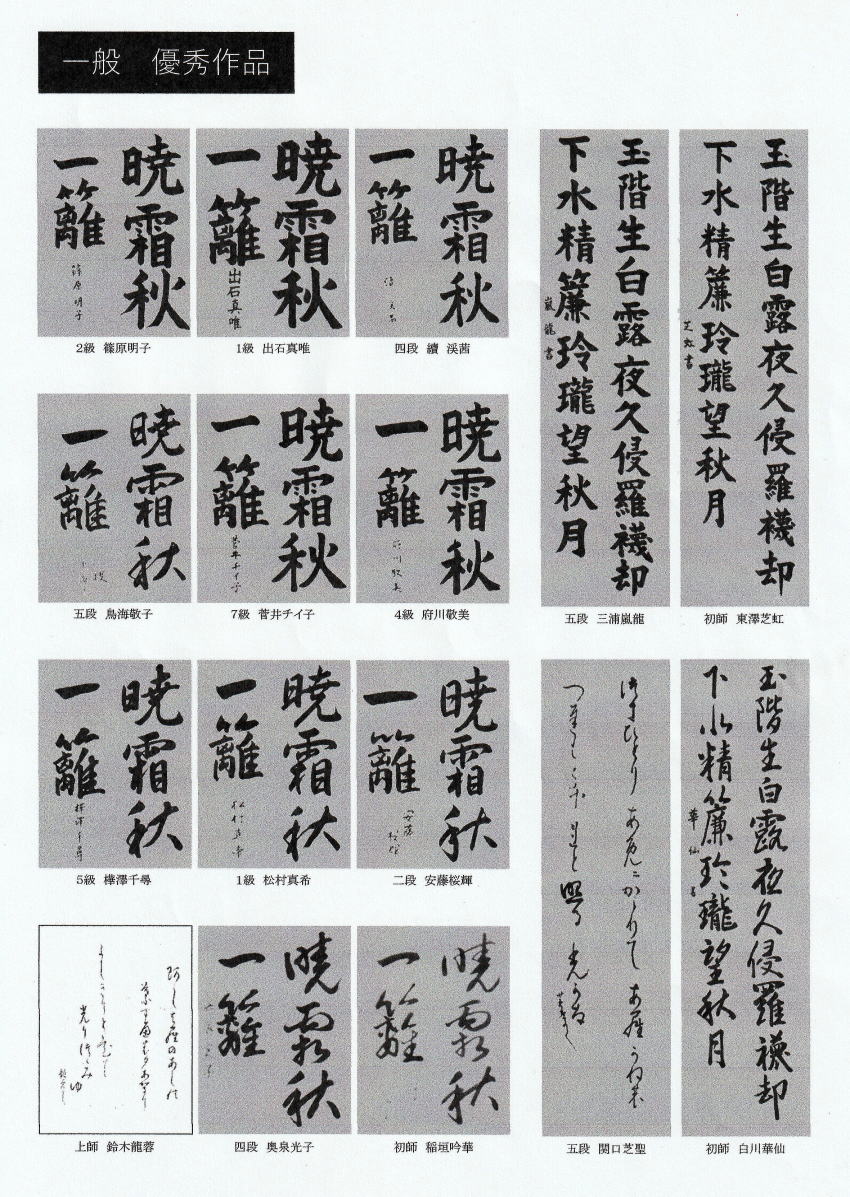 一般　優秀作品
玉階生白露夜久侵羅襪却
下水精簾玲瓏望秋月
芝虹書
初師 東澤芝虹
玉階生白露夜久侵羅襪却
下水精簾玲瓏望秋月
嵐龍書
五段 三浦嵐龍
暁霜秋
一籬
四段 續 渓茜
暁霜秋
一籬
出石真唯
1級 出石真唯
暁霜秋
一籬
篠原明子
2級 篠原明子
暁霜秋
一籬
府川敬美
4級 府川敬美
暁霜秋
一籬
菅井チイ子
7級 菅井チイ子
暁霜秋
一籬
五段 鳥海敬子
玉階生白露夜久侵羅襪却
下水精簾玲瓏望秋月
華仙
初師 白川華仙
五段 関口芝聖
暁霜秋
一籬
安藤桜輝
二段 安藤桜輝
暁霜秋
一籬
松村真希
1級 松村真希
暁霜秋
一籬
樺澤千尋
5級 樺澤千尋
暁霜秋
一籬
初師 稲垣吟華
暁霜秋
一籬
四段 奥泉光子
上師 鈴木龍蓉